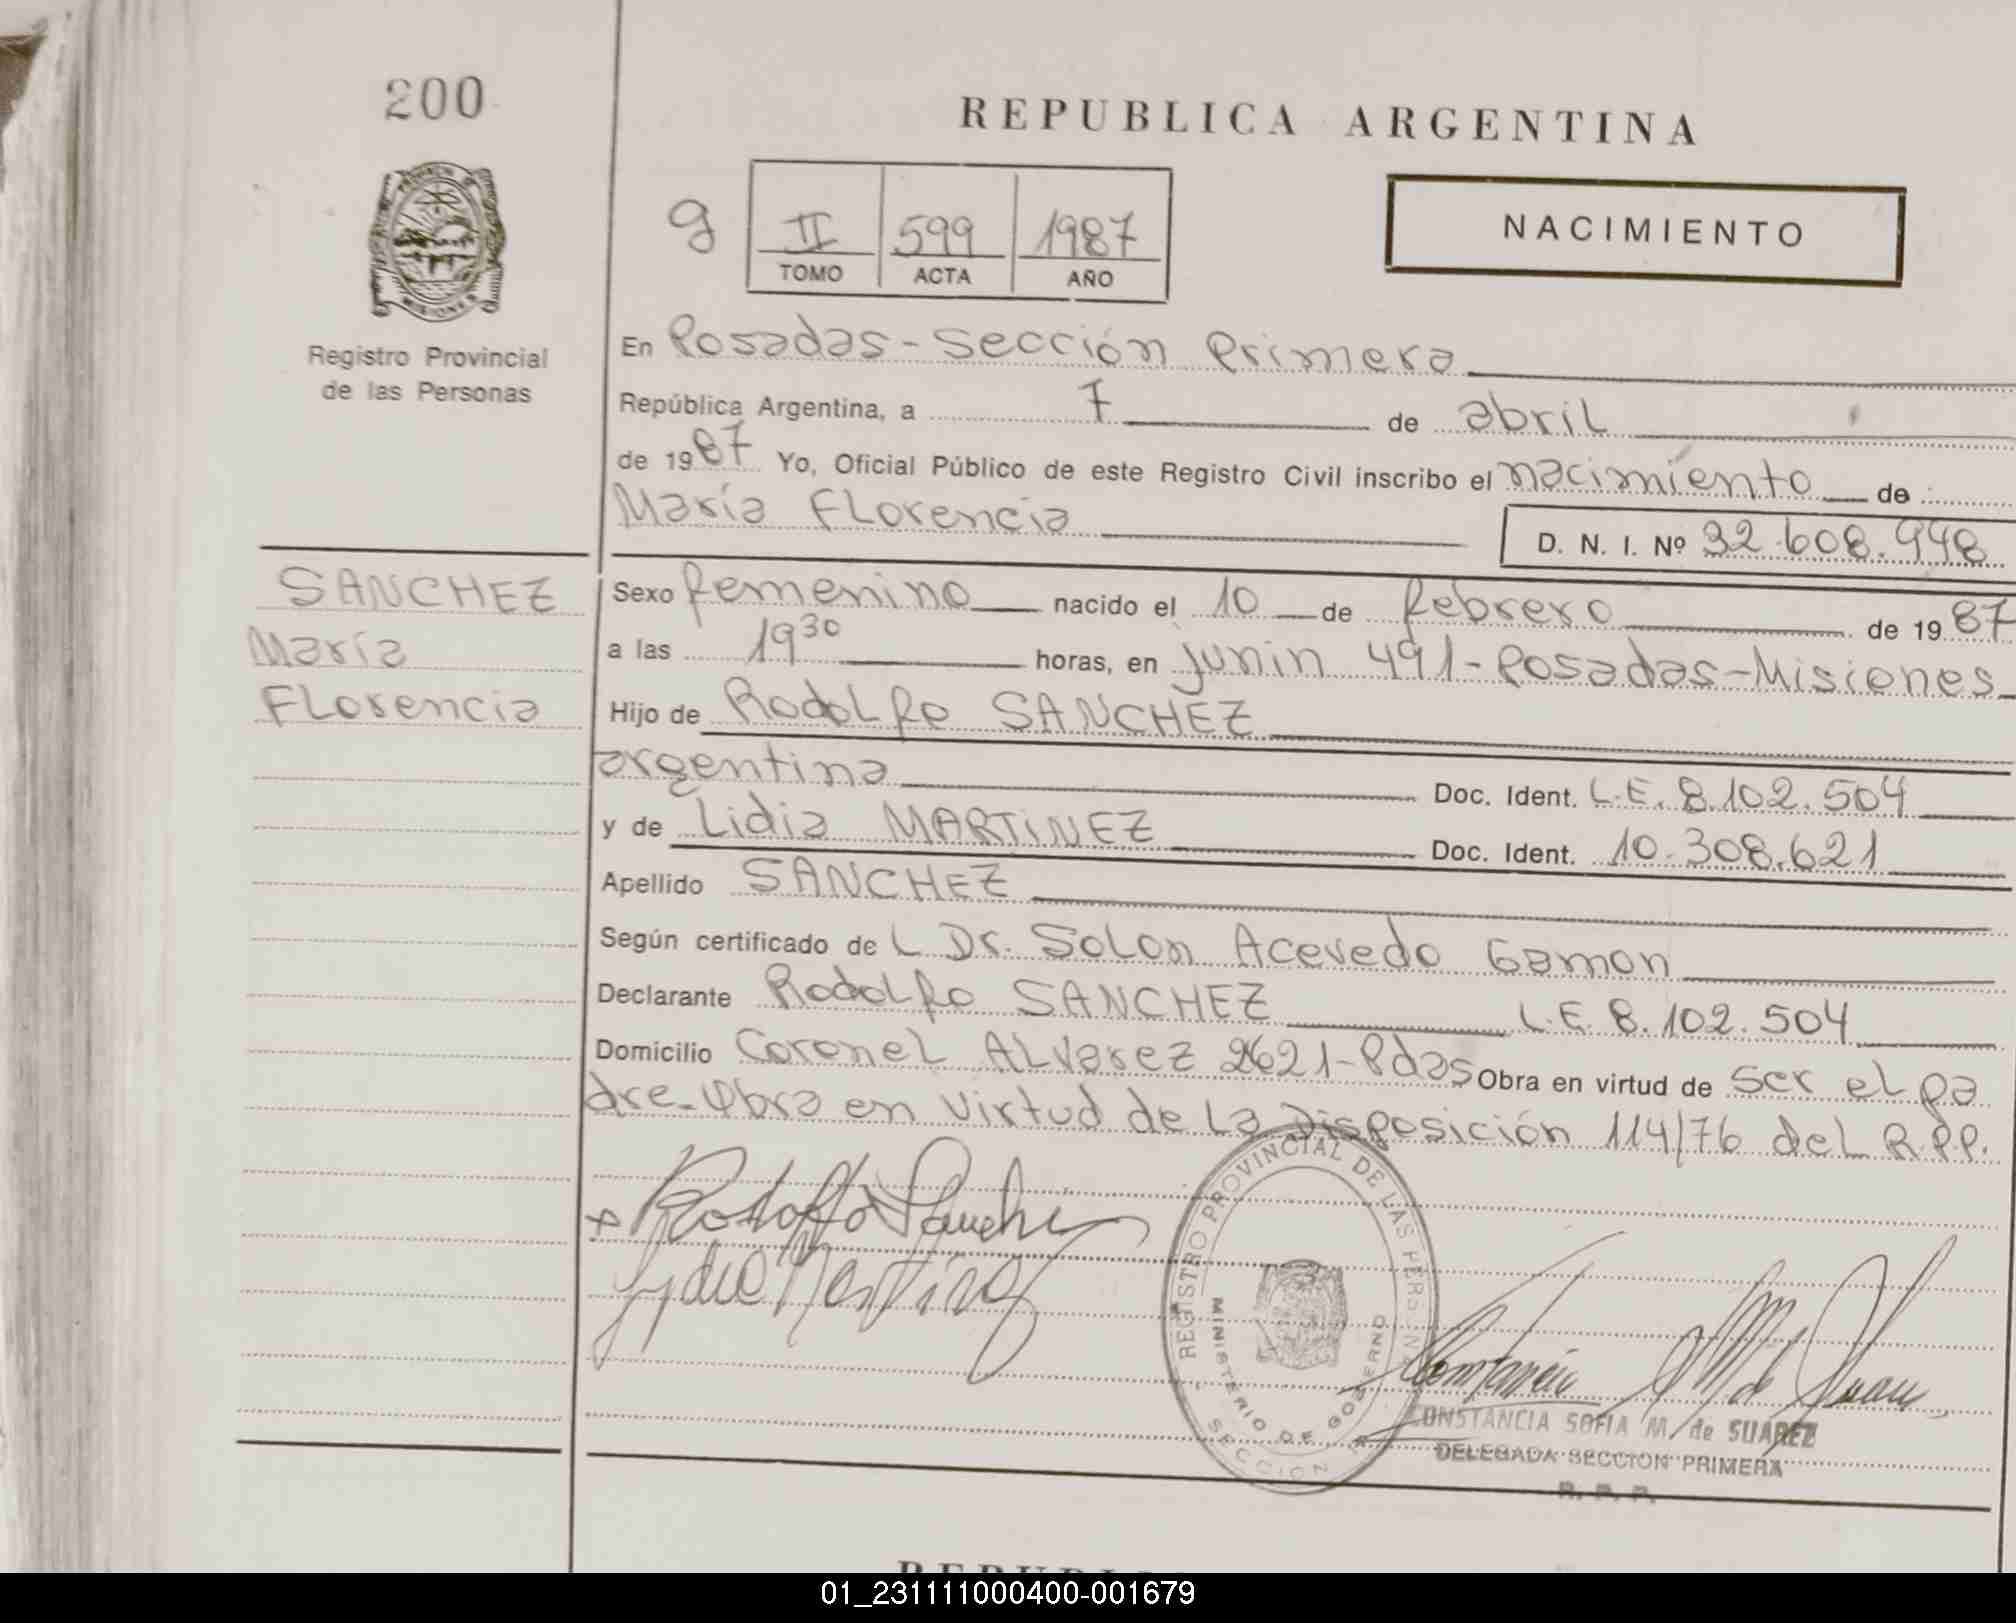 200
REPUBLICA ARGENTINA
PROVINCIA DE MISIONES
Registro Provincial
de las Personas
9
II 599 1987
TOMO ACTA AÑO
NACIMIENTO
En Posadas - Sección Primera
República Argentina, a 7 de abril
de 1987 Yo, Oficial Público de este Registro Civil inscribo el nacimiento de
María Florencia
D. N. I. Nº 32.608.948
SANCHEZ
María
Florencia
Sexo femenino nacido el 10 de febrero de 1987
a las 19 30 horas, en junin 491 - Posadas - Misiones
Hijo de Rodolfo SANCHEZ
argentina Doc. Ident. L.E. 8.102.504
y de Lidia MARTINEZ Doc. Ident. 10.308.621
Apellido SANCHEZ
Según certificado de L Dr. Solon Acevedo Gamon
Declarante Rodolfo SANCHEZ L.E. 8.102.504
Domicilio Coronel Alvarez 2621 - Pdas Obra en virtud de ser el pa
dre - Obra en virtud de la Disposición 114/76 del R.P.P.
Rodolfo Sanchez
Lydia Martinez
REGISTRO PROVINCIAL DE LAS PERSONAS
MINISTERIO DE GOBIERNO
SECCION
CONSTANCIA SOFIA M. de SUAREZ
DELEGADA SECCION PRIMERA
R. P. P.
01_231111000400-001679